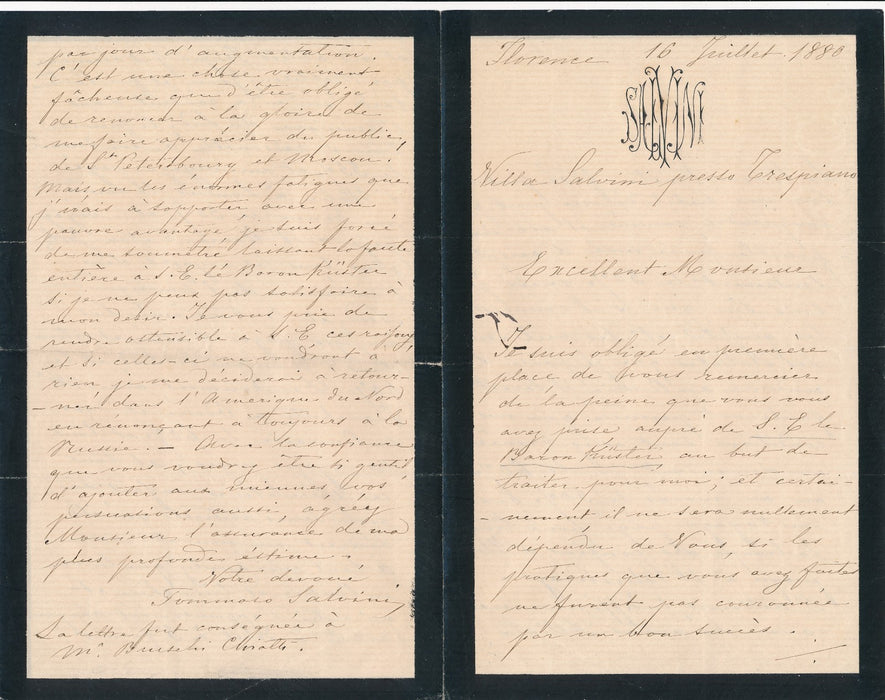 Florence 16 Juillet 1880
SALVINI
Villa Salvini presso Trespiano
Excellent Monsieur
Je suis obligé en première
place de vous remercier
de la peine que vous vous
avez prise aupré de S. E le
Baron Küster au but de
traiter pour moi; et certai-
-nement il ne sera nullement
dépendu de Vous, si les
pratiques que vous avez faites
ne furent pas couronnée
par un bon succès.
par jour d'augmentation.
C'est une chose vraiment
fâcheuse que d'être obligé
de renoncer à la gloire de
me faire apprécier du public,
de St Petersbourg et Moscou.
Mais vu les énormes fatigues que
j'irais à supporter avec une
pauvre avantage je suis forcé
de me soumétré laissant la faute
entière à S. E. lé Baron Küster
si je ne peux pas satisfaire à
mon desir. Je vous prie de
rendre ostensible à S. E ces raisons
et si celles-ci ne voudront à
rien je me déciderai à retour-
-ner dans l'Amerique du Nord
en renonçant à toujours à la
Russie. — Avec la confiance
que vous voudrez être si gentil
d'ajouter aux miennes vos
persuations aussi, agréez
Monsieur l'assurance de ma
plus profonde éstime.
Votre devoué
Tommaso Salvini
La lettre fut conségnée à
Mr